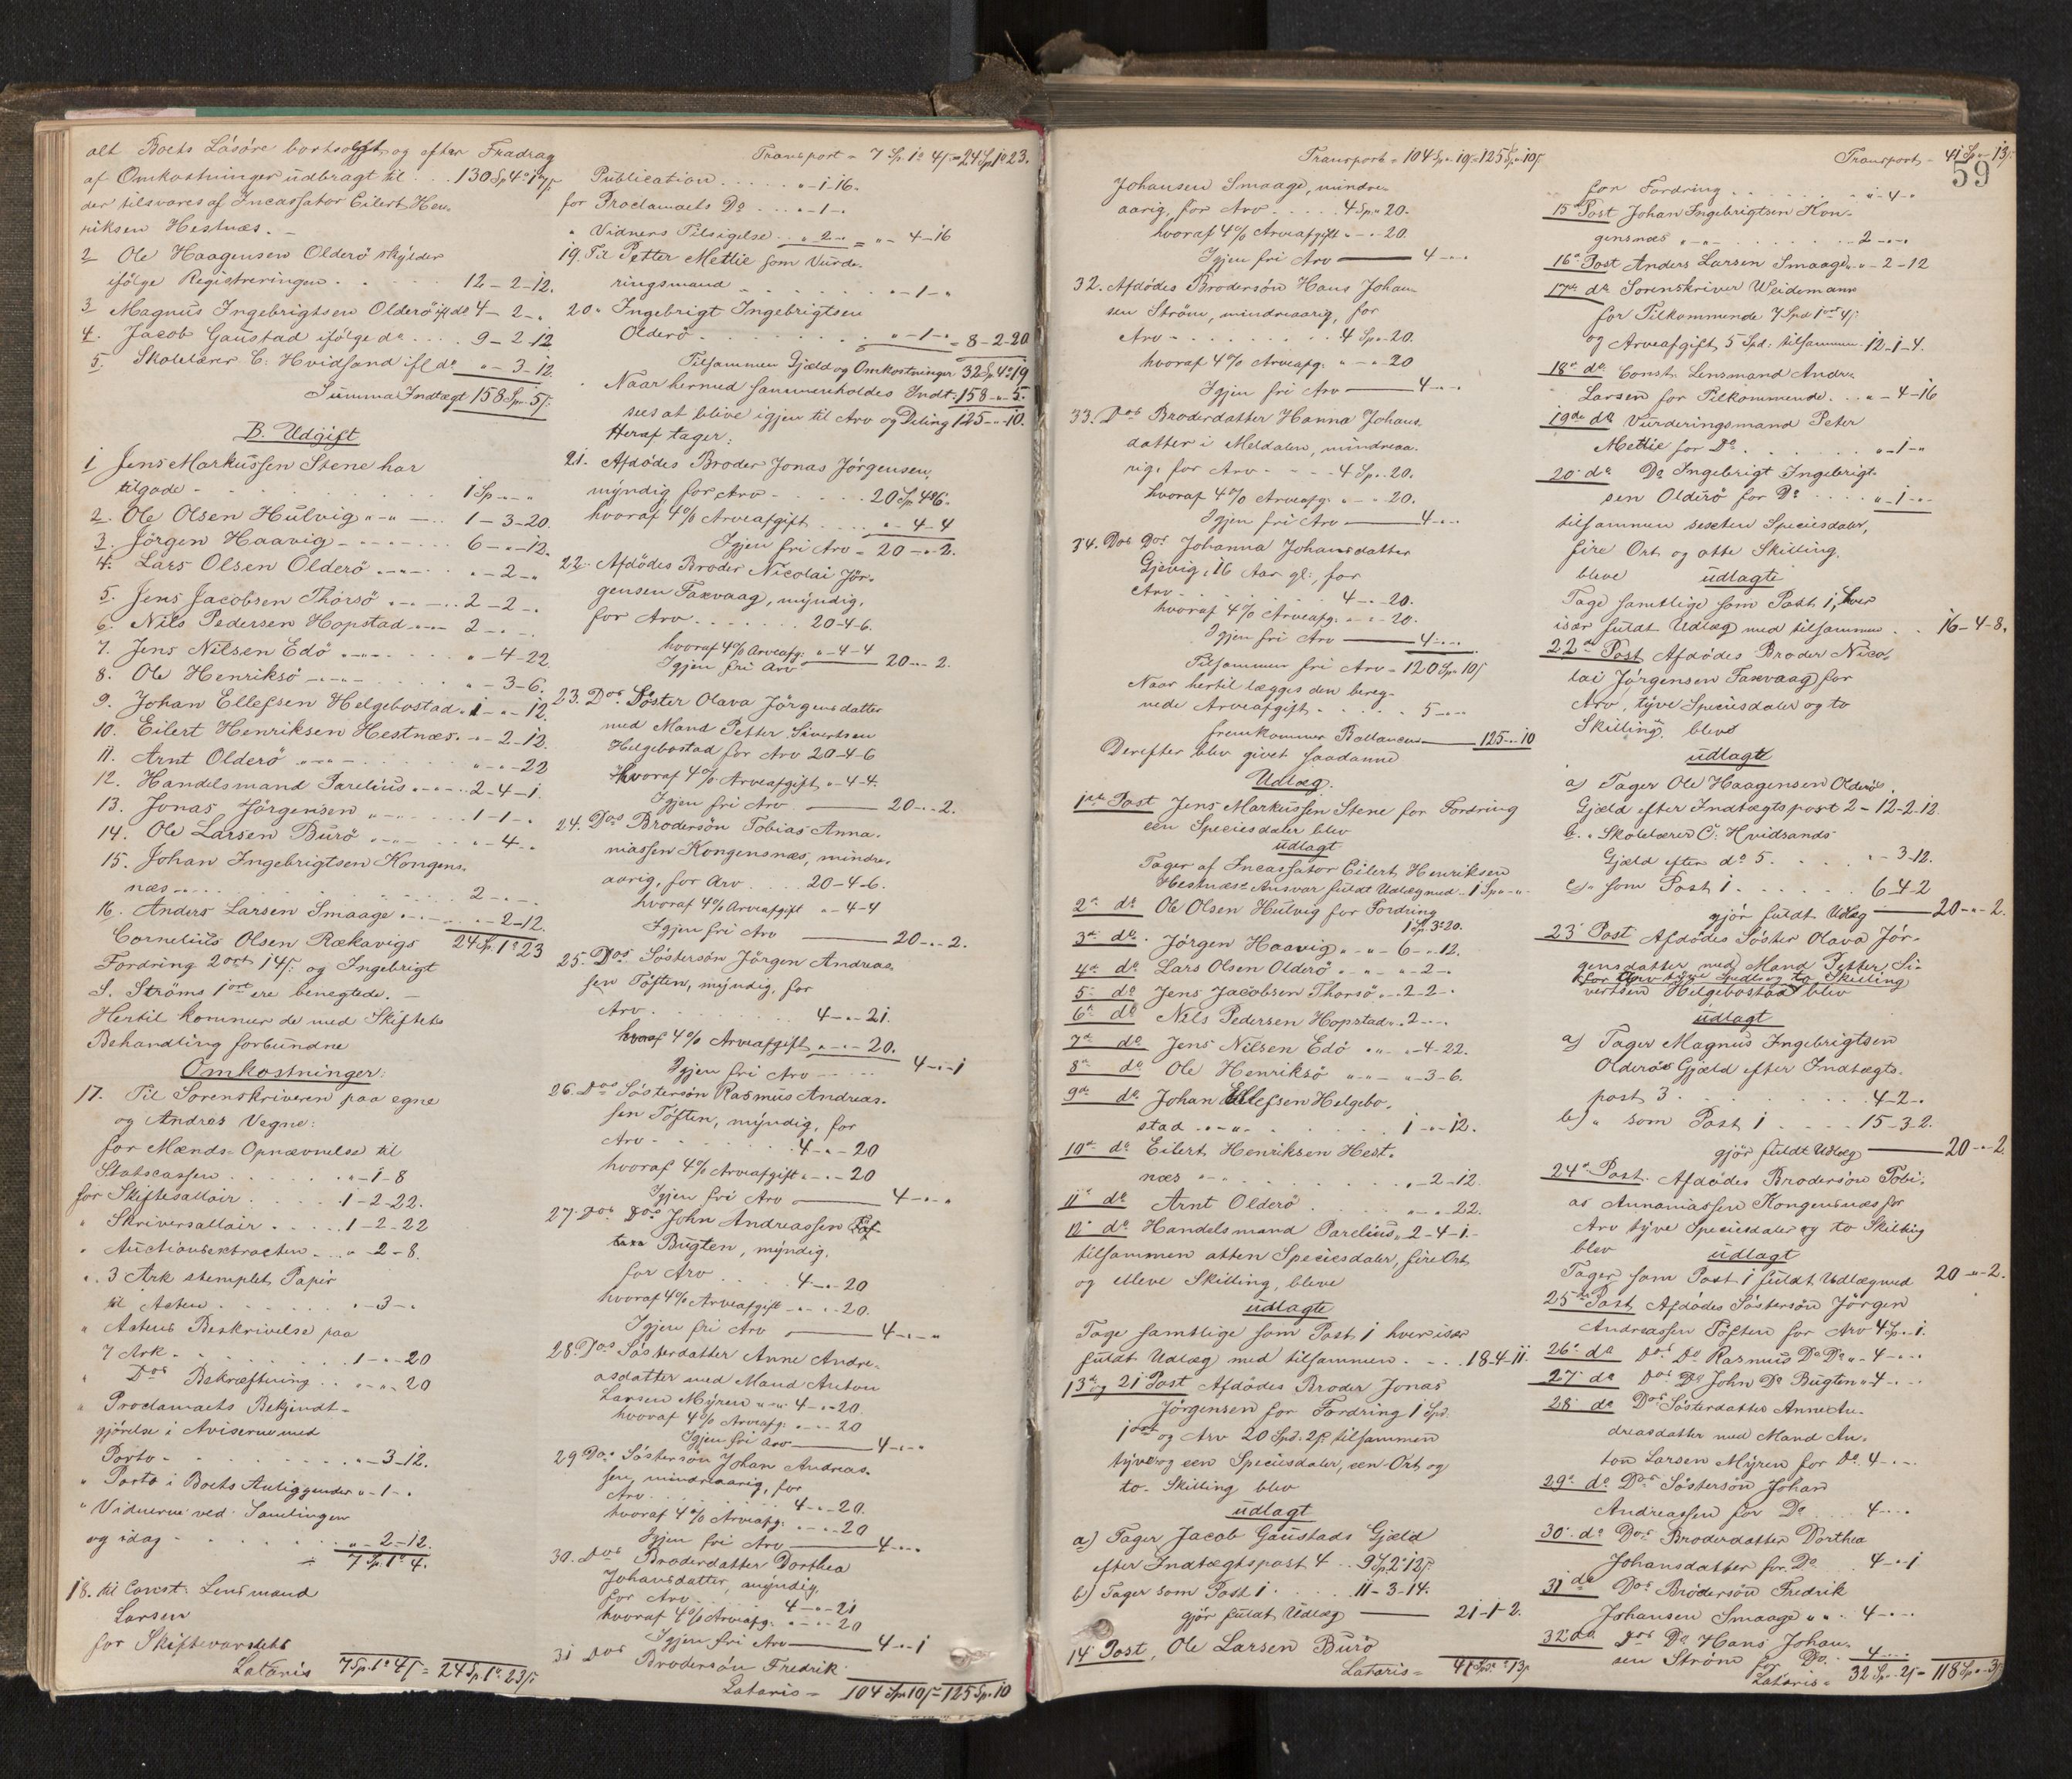 alt Boets Lösöre bortsolgt og efter Fradrag
af Omkostninger udbragt til . . . 130 Sp 4 o 17 s
der tilsvares af Incassator Eilert Hen-
riksen Hestnæs. —
2 Ole Haagensen Olderö skylder
ifölge Registreringen . . . 12 - 2 - 12.
3 Magnus Ingebrigtsen Olderö if. do 4 - 2 - „
4. Jacob Gaustad ifölge do . . . 9 - 2 - 12
5. Skolelærer C. Hvidsand ifl. do „ - 3 - 12.
Summa Indtægt 158 Sp „ 5 s.
B. Udgift
1 Jens Markussen Stene har
tilgode - . . . 1 Sp „ - „
2. Ole Olsen Hulvig „ - „ - . . 1 - 3 - 20.
3. Jörgen Haavig - . . . 6 - „ - 12.
4. Lars Olsen Olderö . - „ - . . „ - 2 - „
5. Jens Jacobsen Thorsö . - . . 2 - 2 - „
6. Nils Pedersen Hopstad . - - 2 - „ - „
7. Jens Nilsen Edö . - „ - . . „ - 4 - 22.
8. Ole Henriksö - „ - „ - . . „ - 3 - 6.
9. Johan Ellefsen Helgebostad . 1 - „ - 12.
10. Eilert Henriksen Hestnæs . - „ - 2 - 12.
11. Arnt Olderö „ - „ - . . . „ - „ - 22
12. Handelsmand Parelius . - „ - . . 2 - 4 - 1.
13. Jonas Jörgensen „ - „ - . . . 1 - 1 - „
14. Ole Larsen Burö „ - „ - . . „ - 4 - „
15. Johan Ingebrigtsen Kongens-
næs - . . . 2 - „ - „
16. Anders Larsen Smaage . - „ - „ - 2 - 12.
24 Sp. 1 o 23
Cornelius Olsen Rækavigs
Fordring 2 ort 14 s. og Ingebrigt
S. Ströms 1 ort ere benegtede. —
Hertil kommer de med Skiftets
Behandling forbundne
Omkostninger:
17. Til Sorenskriveren paa egne
og Andres Vegne:
for Mænds Opnævnelse til
Statscassen . . . „ - 1 - 8
for Skiftesallair . . . 1 - 2 - 22.
„ Skriversallair . . . 1 - 2 - 22
„ Auctionsextracten . . „ - 2 - 8.
„ 3 Ark stemplet Papir
til Acten . . . „ - 3 - „
„ Actens Beskrivelse paa
7 Ark . . . 1 - „ - 20
„ Dos Bekræftning . . „ - „ - 20
„ Proclamaets Bekjendt-
gjörelse i Aviserne med
Porto - . . . „ - 3 - 12.
„ Porto i Boets Anliggender „ - 1 - „
„ Vidnerne ved Samlingen
og idag - . . . „ - 2 - 12.
7 Sp. 1 o 4.
18. til Const. Lensmand
Larsen
for Skiftevarslets
Lateris 7 Sp. 1 o 4 s = 24 Sp. 1 o 23 s.
Transport = 7 Sp. 1 o 4 s = 24 Sp. 1 o 23.
Publication . . . „ - 1 - 16.
for Proclamaets Do . . . „ - 1 - „
„ Vidners Tilsigelse . „ - 2 - „ = „ - 4 - 16
19. Til Petter Mettie som Vurde-
ringsmand - . . . „ - 1 - „
20. „ Ingebrigt Ingebrigtsen
Olderö - . . . „ - 1 - „ = 8 - 2 - 20
Tilsammen Gjæld og Omkostninger 32 Sp 4 o 19
Naar hermed sammenholdes Indt: 158 - „ - 5.
sees at blive igjen til Arv og Deling 125 - „ - 10.
Heraf tager:
21. Afdödes Broder Jonas Jörgensen,
myndig, for Arv - . . . 20 Sp 4 o 6.
hvoraf 4 % Arveafgift . . . „ - 4 - 4
Igjen fri Arv = 20 - „ - 2.
22. Afdödes Broder Nicolai Jör-
gensen Faxvaag, myndig,
for Arv . . . 20 - 4 - 6.
hvoraf 4 % Arveafg. „ - 4 - 4
Igjen fri Arv ——— 20 - „ - 2.
23. Dos Söster Olava Jörgensdatter
med Mand Petter Sivertsen
Helgebostad for Arv 20 - 4 - 6
hvoraf 4 % Arveafgift „ - 4 - 4.
Igjen fri Arv ——— 20 - „ - 2.
24. Dos Brodersön Tobias Anna-
niassen Kongensnæs, mindre-
aarig, for Arv . . . 20 - 4 - 6.
hvoraf 4 % Arveafgift „ - 4 - 4
Igjen fri Arv ——— 20 - „ - 2.
25. Dos Söstersön Jörgen Andreas-
sen Töften, myndig, for
Arv . . . 4 - „ - 21.
hvoraf 4 % Arveafgift „ - „ - 20.
Igjen fri Arv - . . 4 - „ - 1
26. Dos Söstersön Rasmus Andreas-
sen Töften, myndig, for
Arv - . . . 4 - „ - 20
hvoraf 4 % Arveafgift - „ - „ - 20
Igjen fri Arv ——— 4 - „ - „
27. Dos Dos John Andreassen
Bugten, myndig,
for Arv . . . 4 - „ - 20
hvoraf 4 % Arveafgift - „ - „ - 20.
Igjen fri Arv ——— 4 - „ - „
28. Dos Sösterdatter Anne Andre-
asdatter med Mand Anton
Larsen Myren „ - „ 4 - „ - 20.
hvoraf 4 % Arveafg. „ - „ - 20
Igjen fri Arv ——— 4 - „ - „
29 Dos Söstersön Johan Andreas-
sen, mindreaarig, for
Arv . . . 4 - „ - 20.
hvoraf 4 % Arveafg. „ - „ - 20
Igjen fri Arv ——— 4 - „ - „
30. Dos Broderdatter Dorthea
Johansdatter, myndig,
for Arv . . . 4 - „ - 21
hvoraf 4 % Arveafg. „ - „ - 20
Igjen fri Arv ——— 4 - „ - 1
31 Dos Brodersön Fredrik
Lateris = 104 Sp „ 10 s = 125 Sp. „ 10
59
Transport = 104 Sp „ 10 s = 125 Sp „ 10 s.
Johansen Smaage, mindre-
aarig, for Arv . . . 4 Sp. „ 20.
hvoraf 4 % Arveafgift „ - „ - 20.
Igjen fri Arv ——— 4 - „ - „
32. Afdödes Brodersön Hans Johan-
sen Ström, mindreaarig, for
Arv - . . . 4 Sp. „ 20.
hvoraf 4 % Arveafg. „ - „ - 20
Igjen fri Arv ——— 4 - „ - „
33. Dos Broderdatter Hanna Johans-
datter i Meldalen, mindreaa-
rig, for Arv - . . 4 Sp. „ 20.
hvoraf 4 % Arveafg. „ - „ - 20.
Igjen fri Arv ——— 4 - „ - „
34. Dos Dos Johanna Johansdatter
Gjevig, 16 Aar gl., for
Arv - . . . 4 - „ - 20.
hvoraf 4 % Arveafg. „ - „ - 20.
Igjen fri Arv ——— 4 - „ - „
Tilsammen fri Arv = 120 Sp „ 10 s
Naar hertil lægges den bereg-
nede Arveafgift . . . 5 - „ - „
fremkommer Ballancen ——— 125 - „ - 10
Derefter blev givet saadanne
Udlæg.
1ste Post Jens Markussen Stene for Fordring
een Speciesdaler blev
udlagt
Tager af Incassator Eilert Henriksen
Hestnæs Ansvar fuldt Udlæg med - 1 Sp „ - „
2de do Ole Olsen Hulvig for Fordring
1 Sp. 3 o 20.
3de do. Jörgen Haavig „ - „ - 6 - „ - 12.
4de do Lars Olsen Olderö „ - „ - „ - 2 - „
5 do Jens Jacobsen Thorsö „ - 2 - 2 - „
6te do Nils Pedersen Hopstad „ - 2 - „ - „
7de do Jens Nilsen Edö „ - „ - „ - 4 - 22.
8de do Ole Henriksö „ - „ - „ - 3 - 6.
9de do. Johan Ellefsen Helgebo-
stad . - „ - „ . . . 1 - „ - 12.
10de do Eilert Henriksen Hest-
næs „ - „ . . . „ - 2 - 12.
11te do Arnt Olderö . . . „ - „ - 22.
12 do Handelsmand Parelius „ 2 - 4 - 1. -
tilsammen atten Speciesdaler, fire Ort
og elleve Skilling, bleve
udlagte
Tage samtlige som Post 1 hver især
fuldt Udlæg med tilsammen . . . 18 - 4 - 11.
13de og 21 Post Afdödes Broder Jonas
Jörgensen for Fordring 1 Spd.
1 ort og Arv 20 Spd. 2 s. tilsammen
tyve og een Speciesdaler, een Ort og
to Skilling blev
udlagt
a) Tager Jacob Gaustads Gjæld
efter Indtægtspost 4 . . 9 Sp. 2 o 12 s.
b) Tager som Post 1 . . . 11 - 3 - 14.
gjör fuldt Udlæg ——— 21 - 1 - 2.
14 Post, Ole Larsen Burö
Lateris = 41 Spd. „ 13 s
Transport - 41 Sp „ - 13 s.
for Fordring . . . „ - 4 - „
15 Post Johan Ingebrigtsen Kon-
gensnæs „ - „ . . . 2 - „ - „
16de Post Anders Larsen Smaage „ - „ - 2 - 12
17de do Sorenskriver Weidemann
for Tilkommende 7 Spd 1 ort 4 s.
og Arveafgift 5 Spd. tilsammen 12 - 1 - 4.
18de do Const. Lensmand Andr.
Larsen for Tilkommende . . „ - 4 - 16
19de do Vurderingsmand Peter
Mettie for Do . . . „ - 1 - „
20 do Do Ingebrigt Ingebrigt-
sen Olderö for Do . . . „ - 1 - „
tilsammen sexten Speciesdaler,
fire Ort og otte Skilling,
bleve udlagte
Tage samtlige som Post 1, hver
især fuldt Udlæg med tilsammen . . 16 - 4 - 8.
22de Post Afdödes Broder Nico-
lai Jörgensen Faxvaag for
Arv, tyve Speciesdaler og to
Skilling, blev
udlagt
a) Tager Ole Haagensen Olderös
Gjæld efter Indtægtspost 2 - 12 - 2 - 12
b. „ Skolelærer C. Hvidsands
Gjæld efter do 5 . . . „ - 3 - 12.
c) „ som Post 1 . . . 6 - 4 - 2
gjör fuldt Udlæg ——— 20 - „ - 2.
23 Post Afdödes Söster Olava Jör-
gensdatter med Mand Petter Si-
for Arv tyve Spedlr og to Skilling
vertsen Helgebostad blev
udlagt
a) Tager Magnus Ingebrigtsen
Olderös Gjæld efter Indtægts-
post 3 . . . 4 - 2 - „
b) „ som Post 1 . . . 15 - 3 - 2.
gjör fuldt Udlæg ——— 20 - „ - 2.
24de Post. Afdödes Brodersön Tobi-
as Annaniassen Kongensnæs for
Arv tyve Speciesdaler og to Skilling
blev udlagt
Tager som Post 1 fuldt Udlæg med 20 - „ - 2.
25de Post Afdödes Söstersön Jörgen
Andreassen Töften for Arv 4 Sp. „ 1.
26de do Dos Do Rasmus Do Do „ - 4 - „ - „
27 do Dos Do John Do Bugten „ 4 - „ - „
28 do Dos Sösterdatter Anne An-
dreasdatter med Mand An-
ton Larsen Myren for Do. 4 - „ - „
29de do Dos Söstersön Johan
Andreassen for Do . . . 4 - „ - „
30 do Dos Broderdatter Dorthea
Johansdatter for Do . . 4 - „ - 1
31 do Dos Brodersön Fredrik
Johansen Smaage „ „ 4 - „ - „
32 do Dos Do Hans Johan-
sen Ström for Do. 4 - „ - „
Lateris = 32 Sp. „ 2 s = 118 Sp. „ 3 s